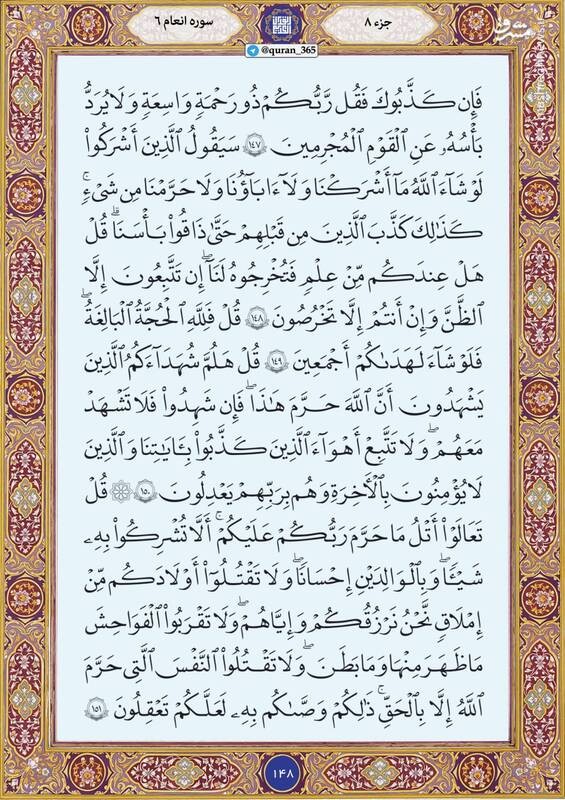 جزء ۸
سوره انعام ۶
@quran_365
مشرق
فَإِن كَذَّبُوكَ فَقُل رَّبُّكُمْ ذُو رَحْمَةٍ وَاسِعَةٍ وَلَا يُرَدُّ
بَأْسُهُۥ عَنِ ٱلْقَوْمِ ٱلْمُجْرِمِينَ ۝١٤٧ سَيَقُولُ ٱلَّذِينَ أَشْرَكُوا۟
لَوْ شَآءَ ٱللَّهُ مَآ أَشْرَكْنَا وَلَآ ءَابَآؤُنَا وَلَا حَرَّمْنَا مِن شَىْءٍ ۚ
كَذَٰلِكَ كَذَّبَ ٱلَّذِينَ مِن قَبْلِهِمْ حَتَّىٰ ذَاقُوا۟ بَأْسَنَا ۗ قُلْ
هَلْ عِندَكُم مِّنْ عِلْمٍ فَتُخْرِجُوهُ لَنَآ ۖ إِن تَتَّبِعُونَ إِلَّا
ٱلظَّنَّ وَإِنْ أَنتُمْ إِلَّا تَخْرُصُونَ ۝١٤٨ قُلْ فَلِلَّهِ ٱلْحُجَّةُ ٱلْبَٰلِغَةُ ۖ
فَلَوْ شَآءَ لَهَدَىٰكُمْ أَجْمَعِينَ ۝١٤٩ قُلْ هَلُمَّ شُهَدَآءَكُمُ ٱلَّذِينَ
يَشْهَدُونَ أَنَّ ٱللَّهَ حَرَّمَ هَٰذَا ۖ فَإِن شَهِدُوا۟ فَلَا تَشْهَدْ
مَعَهُمْ ۚ وَلَا تَتَّبِعْ أَهْوَآءَ ٱلَّذِينَ كَذَّبُوا۟ بِـَٔايَٰتِنَا وَٱلَّذِينَ
لَا يُؤْمِنُونَ بِٱلْءَاخِرَةِ وَهُم بِرَبِّهِمْ يَعْدِلُونَ ۝١٥٠ ۞ قُلْ
تَعَالَوْا۟ أَتْلُ مَا حَرَّمَ رَبُّكُمْ عَلَيْكُمْ ۖ أَلَّا تُشْرِكُوا۟ بِهِۦ
شَيْـًٔا ۖ وَبِٱلْوَٰلِدَيْنِ إِحْسَٰنًا ۖ وَلَا تَقْتُلُوٓا۟ أَوْلَٰدَكُم مِّنْ
إِمْلَٰقٍ ۖ نَّحْنُ نَرْزُقُكُمْ وَإِيَّاهُمْ ۖ وَلَا تَقْرَبُوا۟ ٱلْفَوَٰحِشَ
مَا ظَهَرَ مِنْهَا وَمَا بَطَنَ ۖ وَلَا تَقْتُلُوا۟ ٱلنَّفْسَ ٱلَّتِى حَرَّمَ
ٱللَّهُ إِلَّا بِٱلْحَقِّ ۚ ذَٰلِكُمْ وَصَّىٰكُم بِهِۦ لَعَلَّكُمْ تَعْقِلُونَ ۝١٥١
۱۴۸